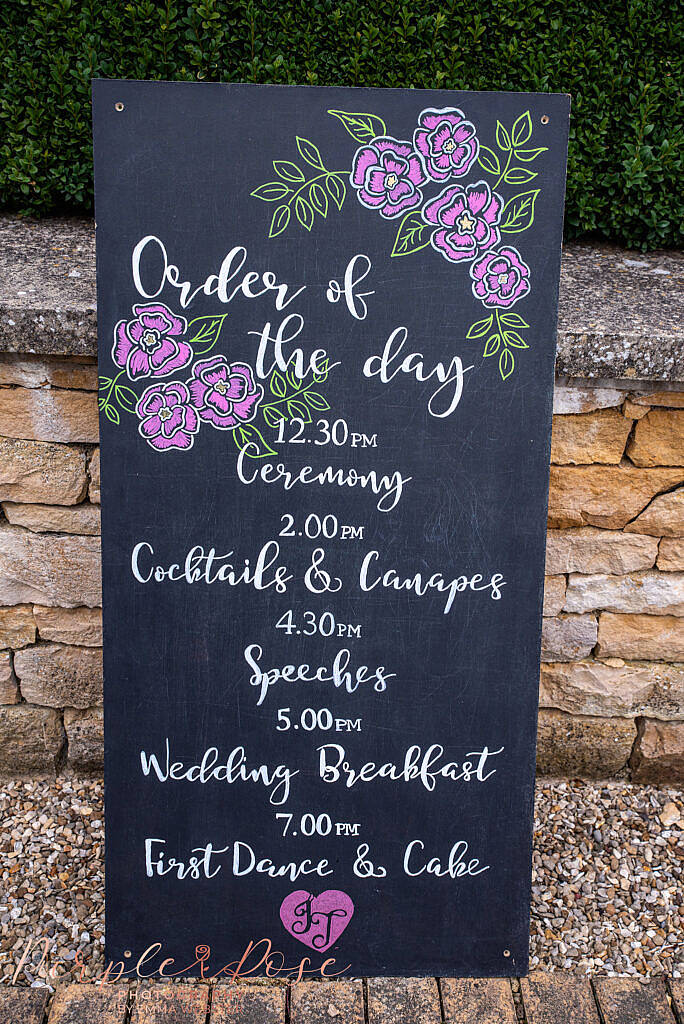 Order of
the day
12.30PM
Ceremony
2.00PM
Cocktails & Canapes
4.30PM
Speeches
5.00PM
Wedding Breakfast
7.00PM
First Dance & Cake
JT
Purple Rose
PHOTOGRAPHY